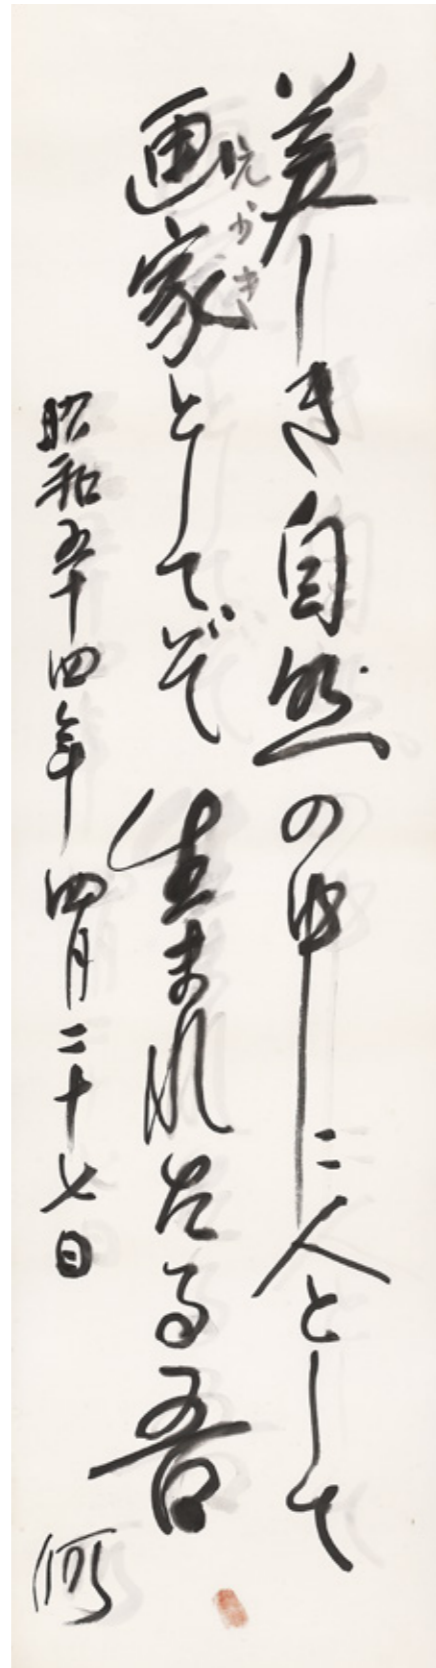 美しき自然の中に人として
画家としてぞ生まれたる吾
昭和五十四年四月二十七日